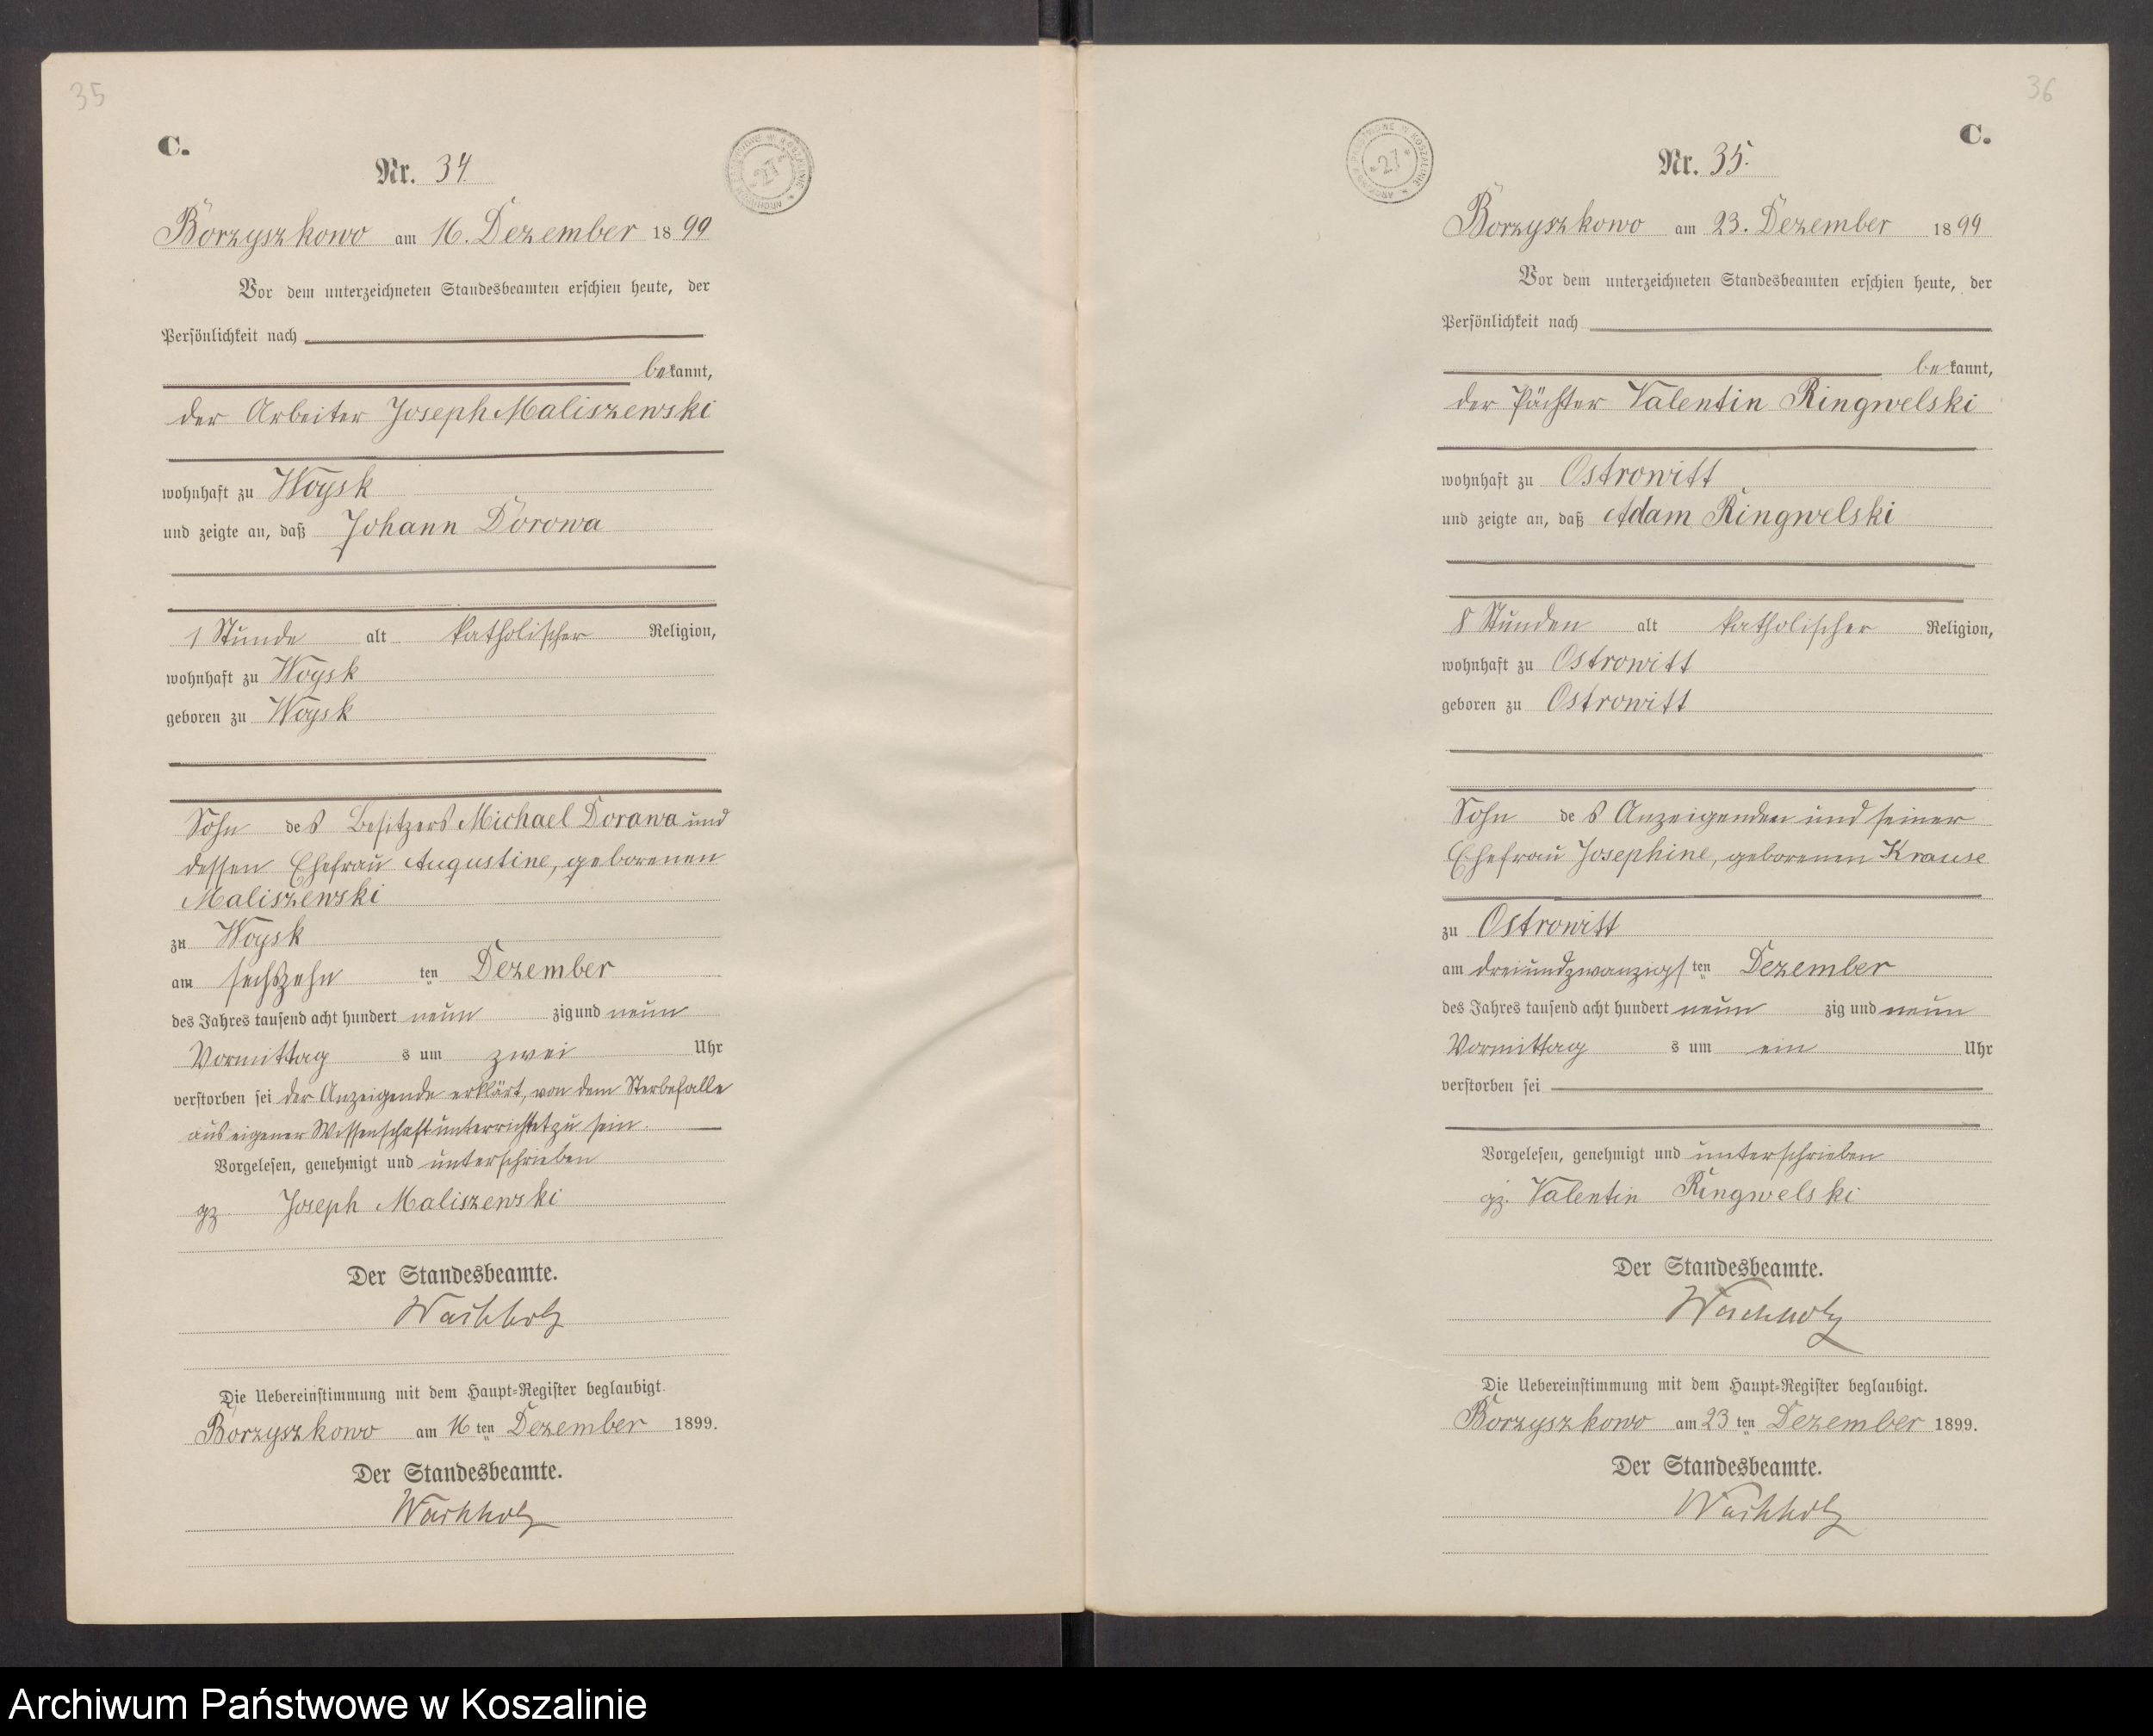 35
C.
Nr. 34.
Borzyszkowo am 16. Dezember 1899
Vor dem unterzeichneten Standesbeamten erschien heute, der
Persönlichkeit nach
bekannt,
der Arbeiter Joseph Maliszewski
wohnhaft zu Woysk
und zeigte an, daß Johann Dorowa
1 Stunde alt katholischer Religion,
wohnhaft zu Woysk
geboren zu Woysk
Sohn des Besitzers Michael Dorawa und
dessen Ehefrau Augustine, geborenen
Maliszewski
zu Woysk
am sechszehn ten Dezember
des Jahres tausend acht hundert neun zig und neun
Vormittag s um zwei Uhr
verstorben sei der Anzeigende erklärt, von dem Sterbefalle
aus eigener Wissenschaft unterrichtet zu sein.
Vorgelesen, genehmigt und unterschrieben
gz. Joseph Maliszewski
Der Standesbeamte.
Wachholz
Die Uebereinstimmung mit dem Haupt-Register beglaubigt.
Borzyszkowo am 16 ten Dezember 1899.
Der Standesbeamte.
Wachholz
36
C.
Nr. 35.
Borzyszkowo am 23. Dezember 1899
Vor dem unterzeichneten Standesbeamten erschien heute, der
Persönlichkeit nach
bekannt,
der Pächter Valentin Ringwelski
wohnhaft zu Ostrowitt
und zeigte an, daß Adam Ringwelski
8 Stunden alt katholischer Religion,
wohnhaft zu Ostrowitt
geboren zu Ostrowitt
Sohn des Anzeigenden und seiner
Ehefrau Josephine, geborenen Krause
zu Ostrowitt
am dreiundzwanzigsten Dezember
des Jahres tausend acht hundert neun zig und neun
Vormittag s um ein Uhr
verstorben sei
Vorgelesen, genehmigt und unterschrieben
gz. Valentin Ringwelski
Der Standesbeamte.
Wachholz
Die Uebereinstimmung mit dem Haupt-Register beglaubigt.
Borzyszkowo am 23 ten Dezember 1899.
Der Standesbeamte.
Wachholz
ARCHIWUM PAŃSTWOWE W KOSZALINIE
27
ARCHIWUM PAŃSTWOWE W KOSZALINIE
27
Archiwum Państwowe w Koszalinie